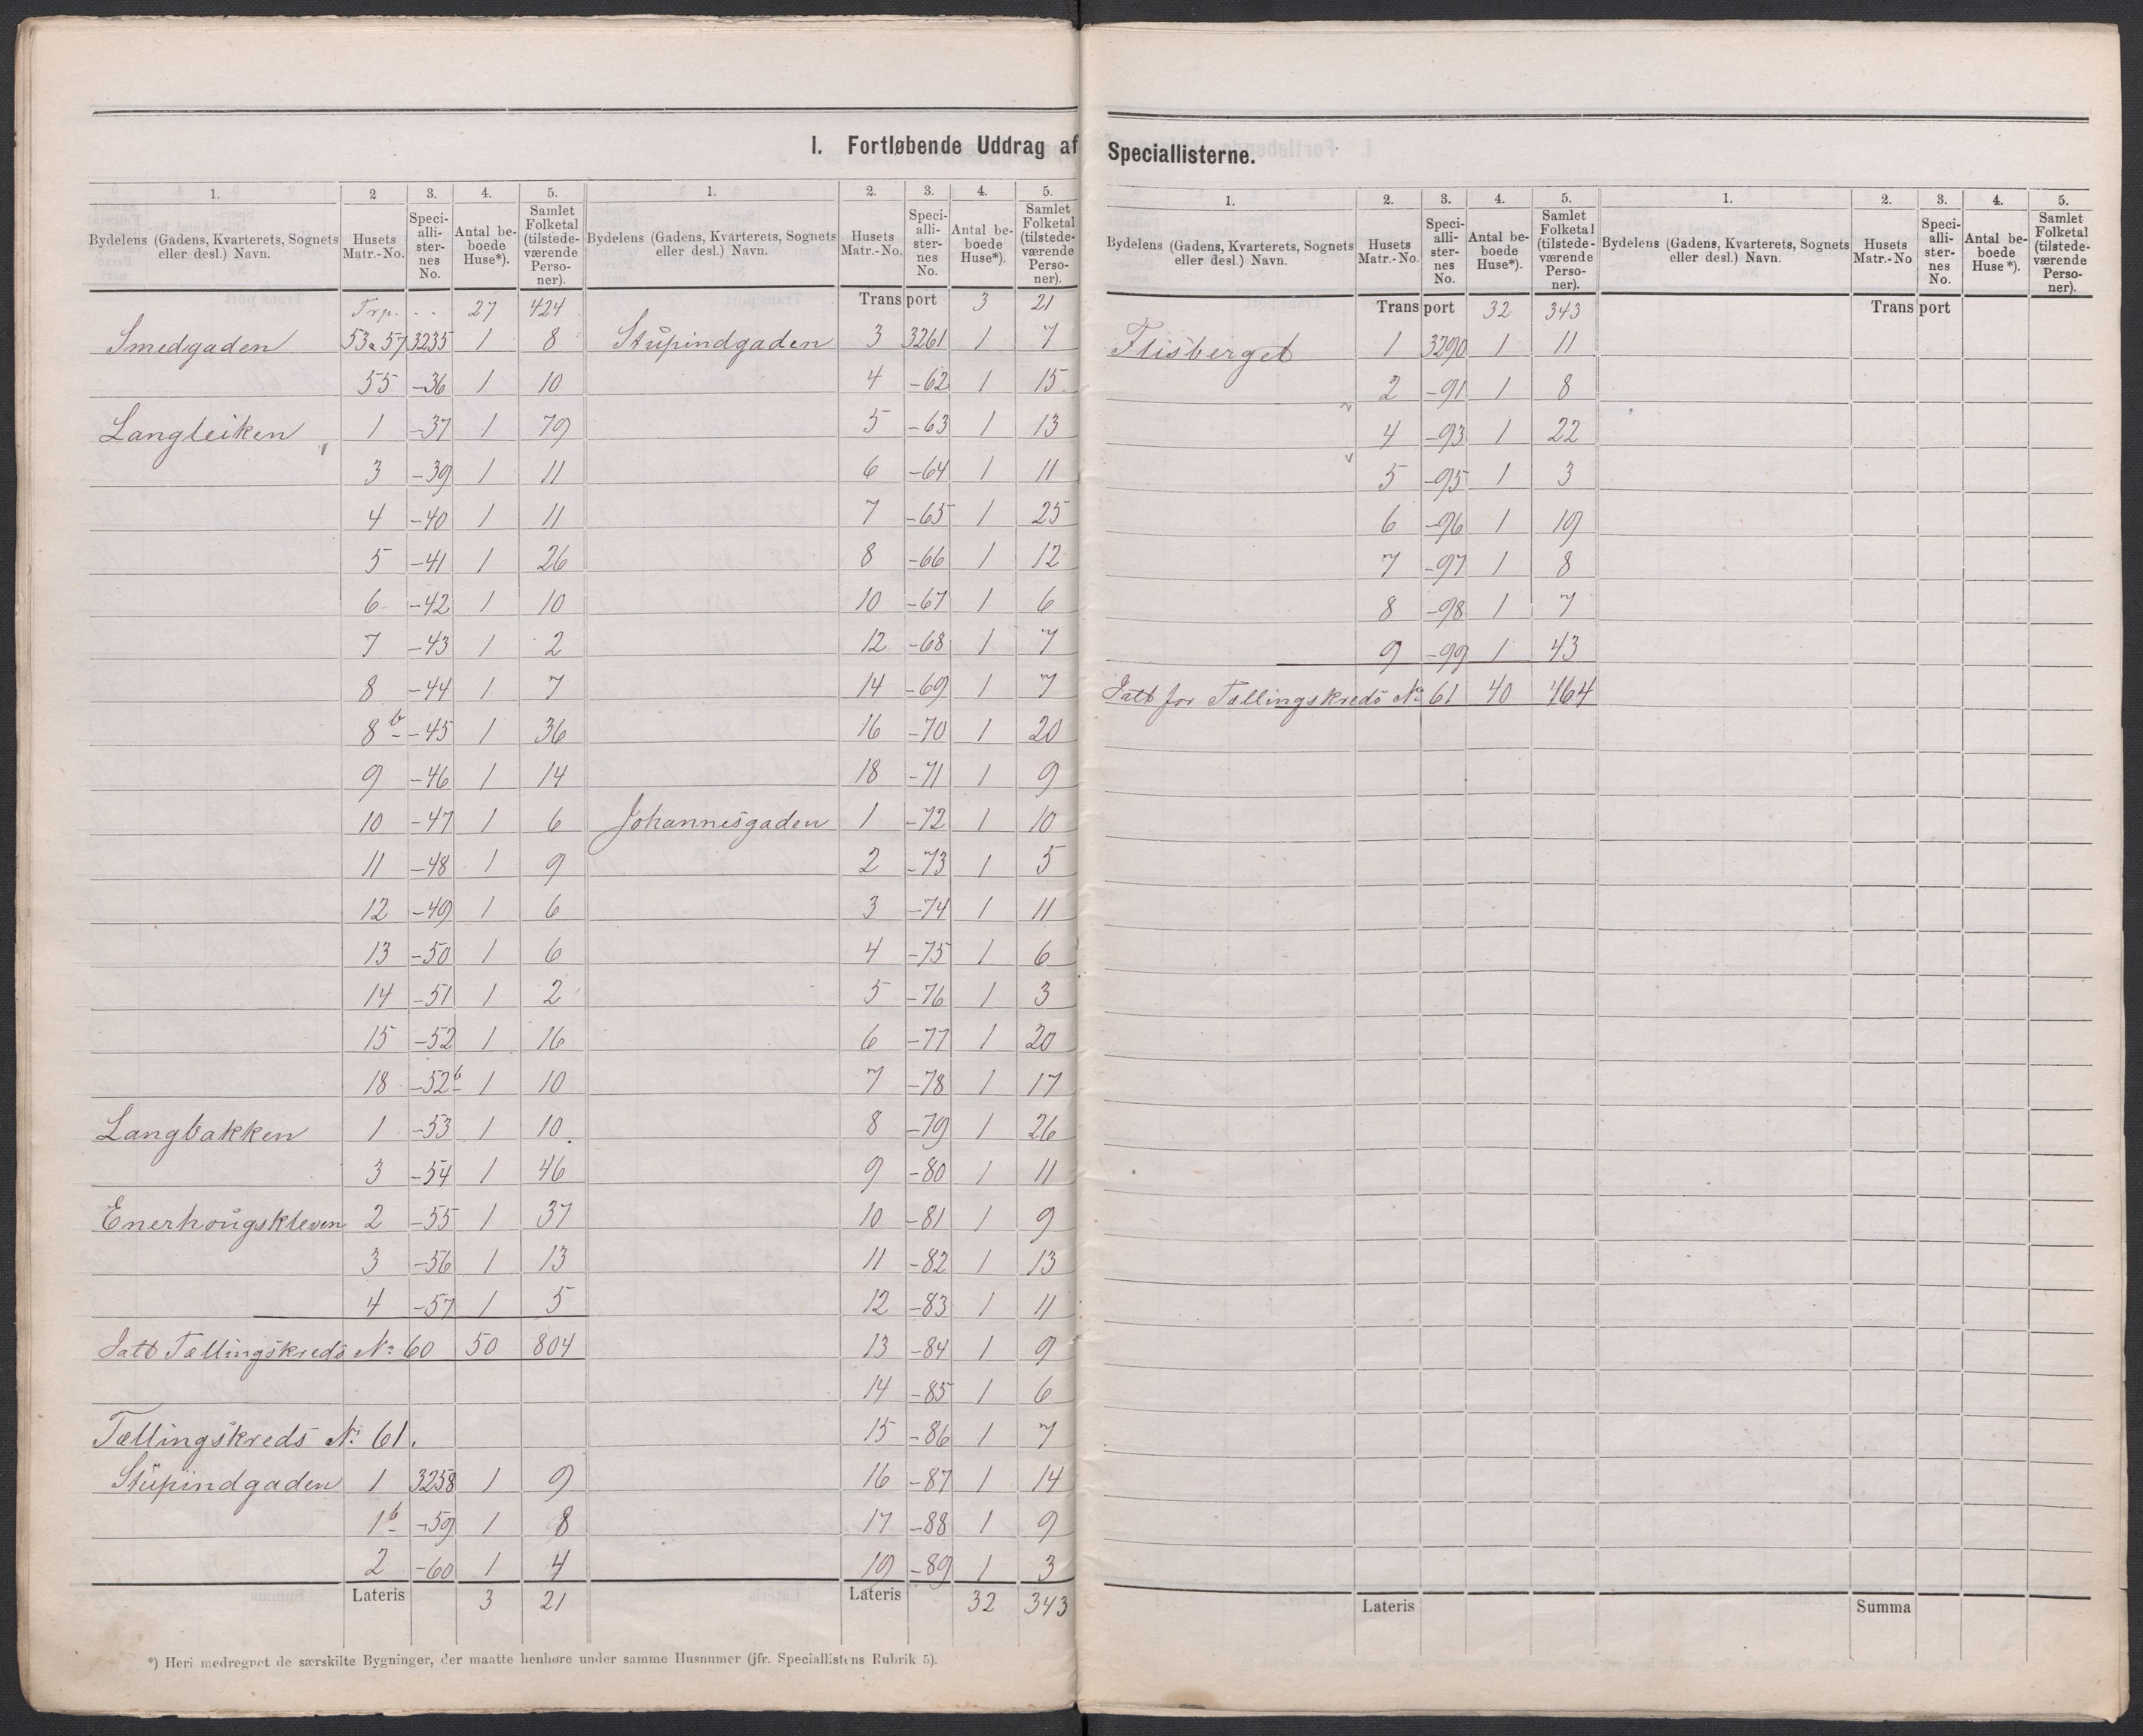 I. Fortløbende Uddrag af Speciallisterne.
1. 2 3. 4. 5. 1. 2. 3. 4. 5.
Bydelens (Gadens, Kvarterets, Sognets eller desl.) Navn. Husets Matr.-No. Speciallisternes No. Antal beboede Huse*). Samlet Folketal (tilstedeværende Personer). Bydelens (Gadens, Kvarterets, Sognets eller desl.) Navn. Husets Matr.-No. Speciallisternes No. Antal beboede Huse*). Samlet Folketal (tilstedeværende Personer).
Trp. . . 27 424
Smedgaden 53 & 57 3235 1 8
55 -36 1 10
Langleiken 1 -37 1 79
3 -39 1 11
4 -40 1 11
5 -41 1 26
6 -42 1 10
7 -43 1 2
8 -44 1 7
8b -45 1 36
9 -46 1 14
10 -47 1 6
11 -48 1 9
12 -49 1 6
13 -50 1 6
14 -51 1 2
15 -52 1 16
18 -52b 1 10
Langbakken 1 -53 1 10
3 -54 1 46
Enerhougskleven 2 -55 1 37
3 -56 1 13
4 -57 1 5
Ialt Tællingskreds No 60 50 804
Tællingskreds No 61.
Stupindgaden 1 3258 1 9
1b -59 1 8
2 -60 1 4
Lateris 3 21
Transport 3 21
Stupindgaden 3 3261 1 7
4 -62 1 15
5 -63 1 13
6 -64 1 11
7 -65 1 25
8 -66 1 12
10 -67 1 6
12 -68 1 7
14 -69 1 7
16 -70 1 20
18 -71 1 9
Johannesgaden 1 -72 1 10
2 -73 1 5
3 -74 1 11
4 -75 1 6
5 -76 1 3
6 -77 1 20
7 -78 1 17
8 -79 1 26
9 -80 1 11
10 -81 1 9
11 -82 1 13
12 -83 1 11
13 -84 1 9
14 -85 1 6
15 -86 1 7
16 -87 1 14
17 -88 1 9
19 -89 1 3
Lateris 32 343
*) Heri medregnet de særskilte Bygninger, der maatte henhøre under samme Husnumer (jfr. Speciallistens Rubrik 5).
1. 2. 3. 4. 5. 1. 2. 3. 4. 5.
Bydelens (Gadens, Kvarterets, Sognets eller desl.) Navn. Husets Matr.-No. Speciallisternes No. Antal beboede Huse*). Samlet Folketal (tilstedeværende Personer). Bydelens (Gadens, Kvarterets, Sognets eller desl.) Navn. Husets Matr.-No Speciallisternes No. Antal beboede Huse*). Samlet Folketal (tilstedeværende Personer).
Transport 32 343 Transport
Flisberget 1 3290 1 11
2 -91 1 8
4 -93 1 22
5 -95 1 3
6 -96 1 19
7 -97 1 8
8 -98 1 7
9 -99 1 43
Ialt for Tællingskreds No 61 40 464
Lateris Summa